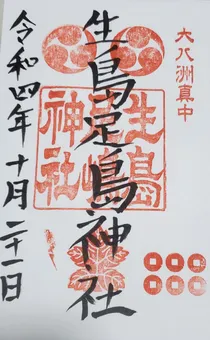 大八洲真中
生島足島神社
生島
神社
令和四年十月二十一日